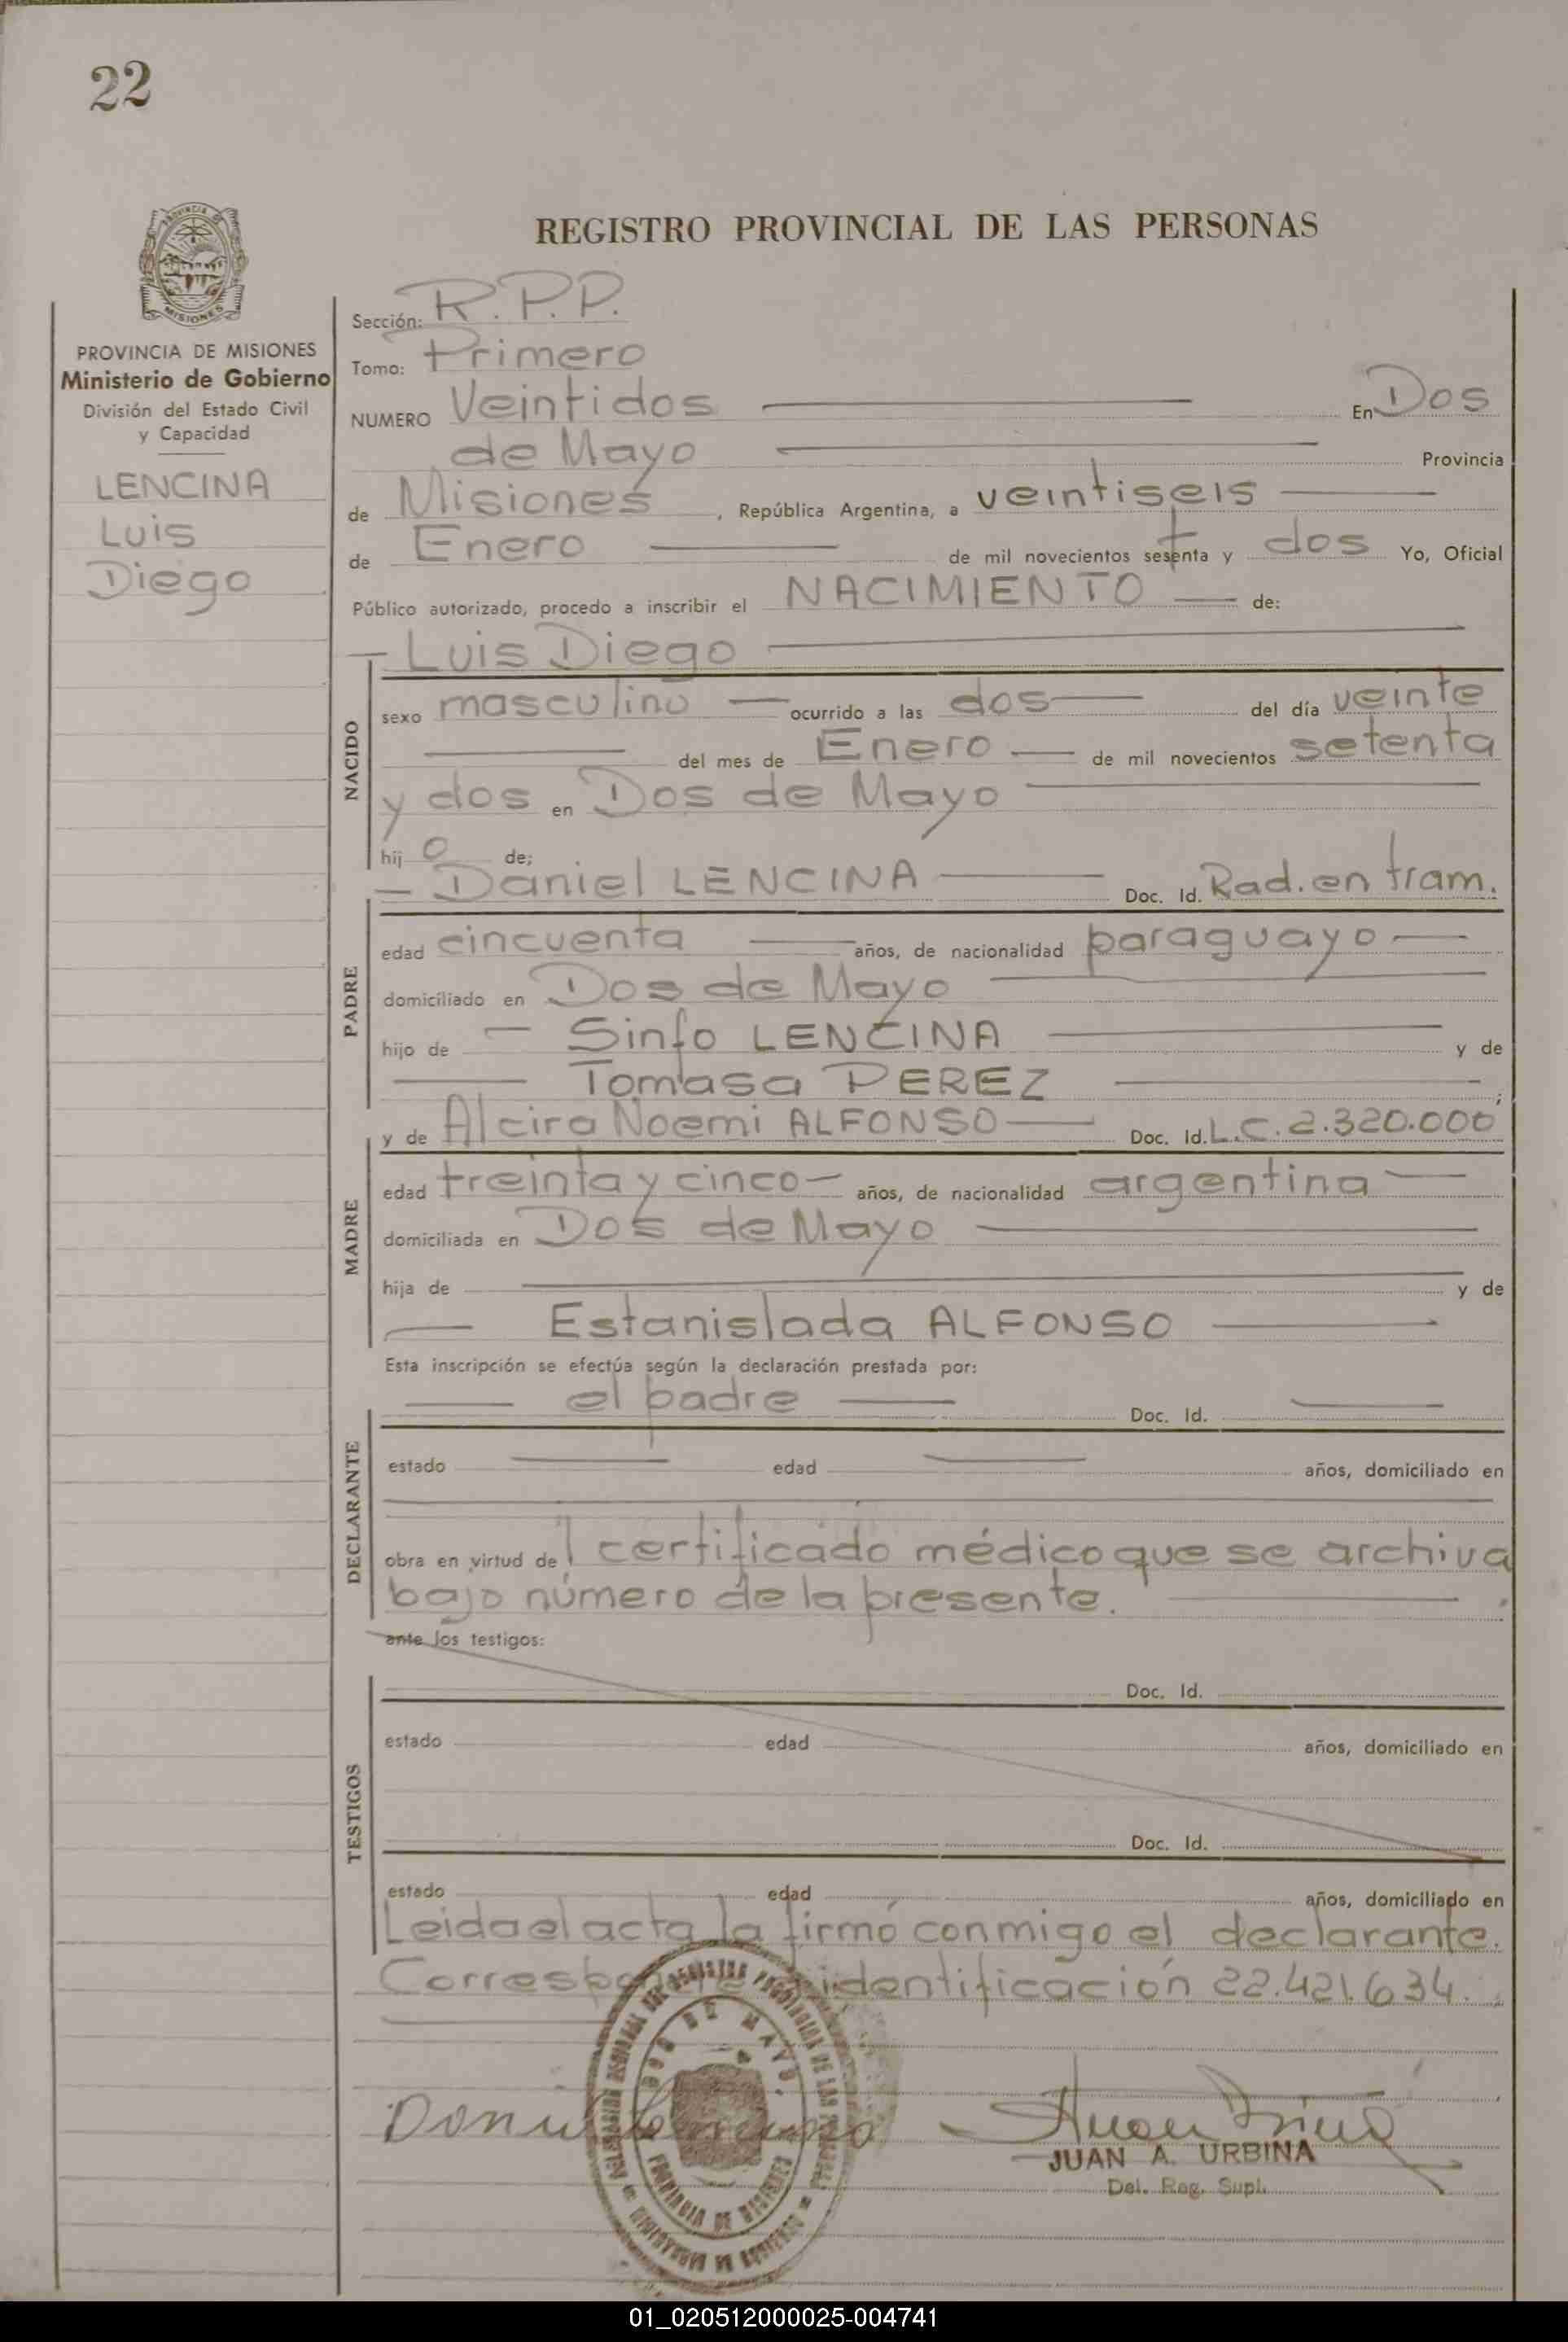 22
PROVINCIA DE MISIONES
Ministerio de Gobierno
División del Estado Civil
y Capacidad
LENCINA
Luis
Diego
REGISTRO PROVINCIAL DE LAS PERSONAS
Sección: R.P.P.
Tomo: Primero
NUMERO Veintidos En Dos
de Mayo Provincia
de Misiones, República Argentina, a veintiseis
de Enero de mil novecientos sesenta y dos Yo, Oficial
Público autorizado, procedo a inscribir el NACIMIENTO de:
Luis Diego
NACIDO
sexo masculino ocurrido a las dos del día veinte
del mes de Enero de mil novecientos setenta
y dos en Dos de Mayo
hij o de:
Daniel LENCINA Doc. Id. Rad. en tram.
PADRE
edad cincuenta años, de nacionalidad paraguayo
domiciliado en Dos de Mayo
hijo de Sinfo LENCINA y de
Tomasa PEREZ ;
y de Alcira Noemi ALFONSO Doc. Id. L.C. 2.320.000
MADRE
edad treinta y cinco años, de nacionalidad argentina
domiciliada en Dos de Mayo
hija de y de
Estanislada ALFONSO
Esta inscripción se efectúa según la declaración prestada por:
el padre Doc. Id.
DECLARANTE
estado edad años, domiciliado en
obra en virtud del certificado médico que se archiva
bajo número de la presente.
ante los testigos:
Doc. Id.
TESTIGOS
estado edad años, domiciliado en
Doc. Id.
estado edad años, domiciliado en
Leida el acta la firmó conmigo el declarante.
identificación 22.421.634.
DOS DE MAYO
PROVINCIA DE MISIONES
JUAN A. URBINA
Del. Reg. Supl.
01_020512000025-004741